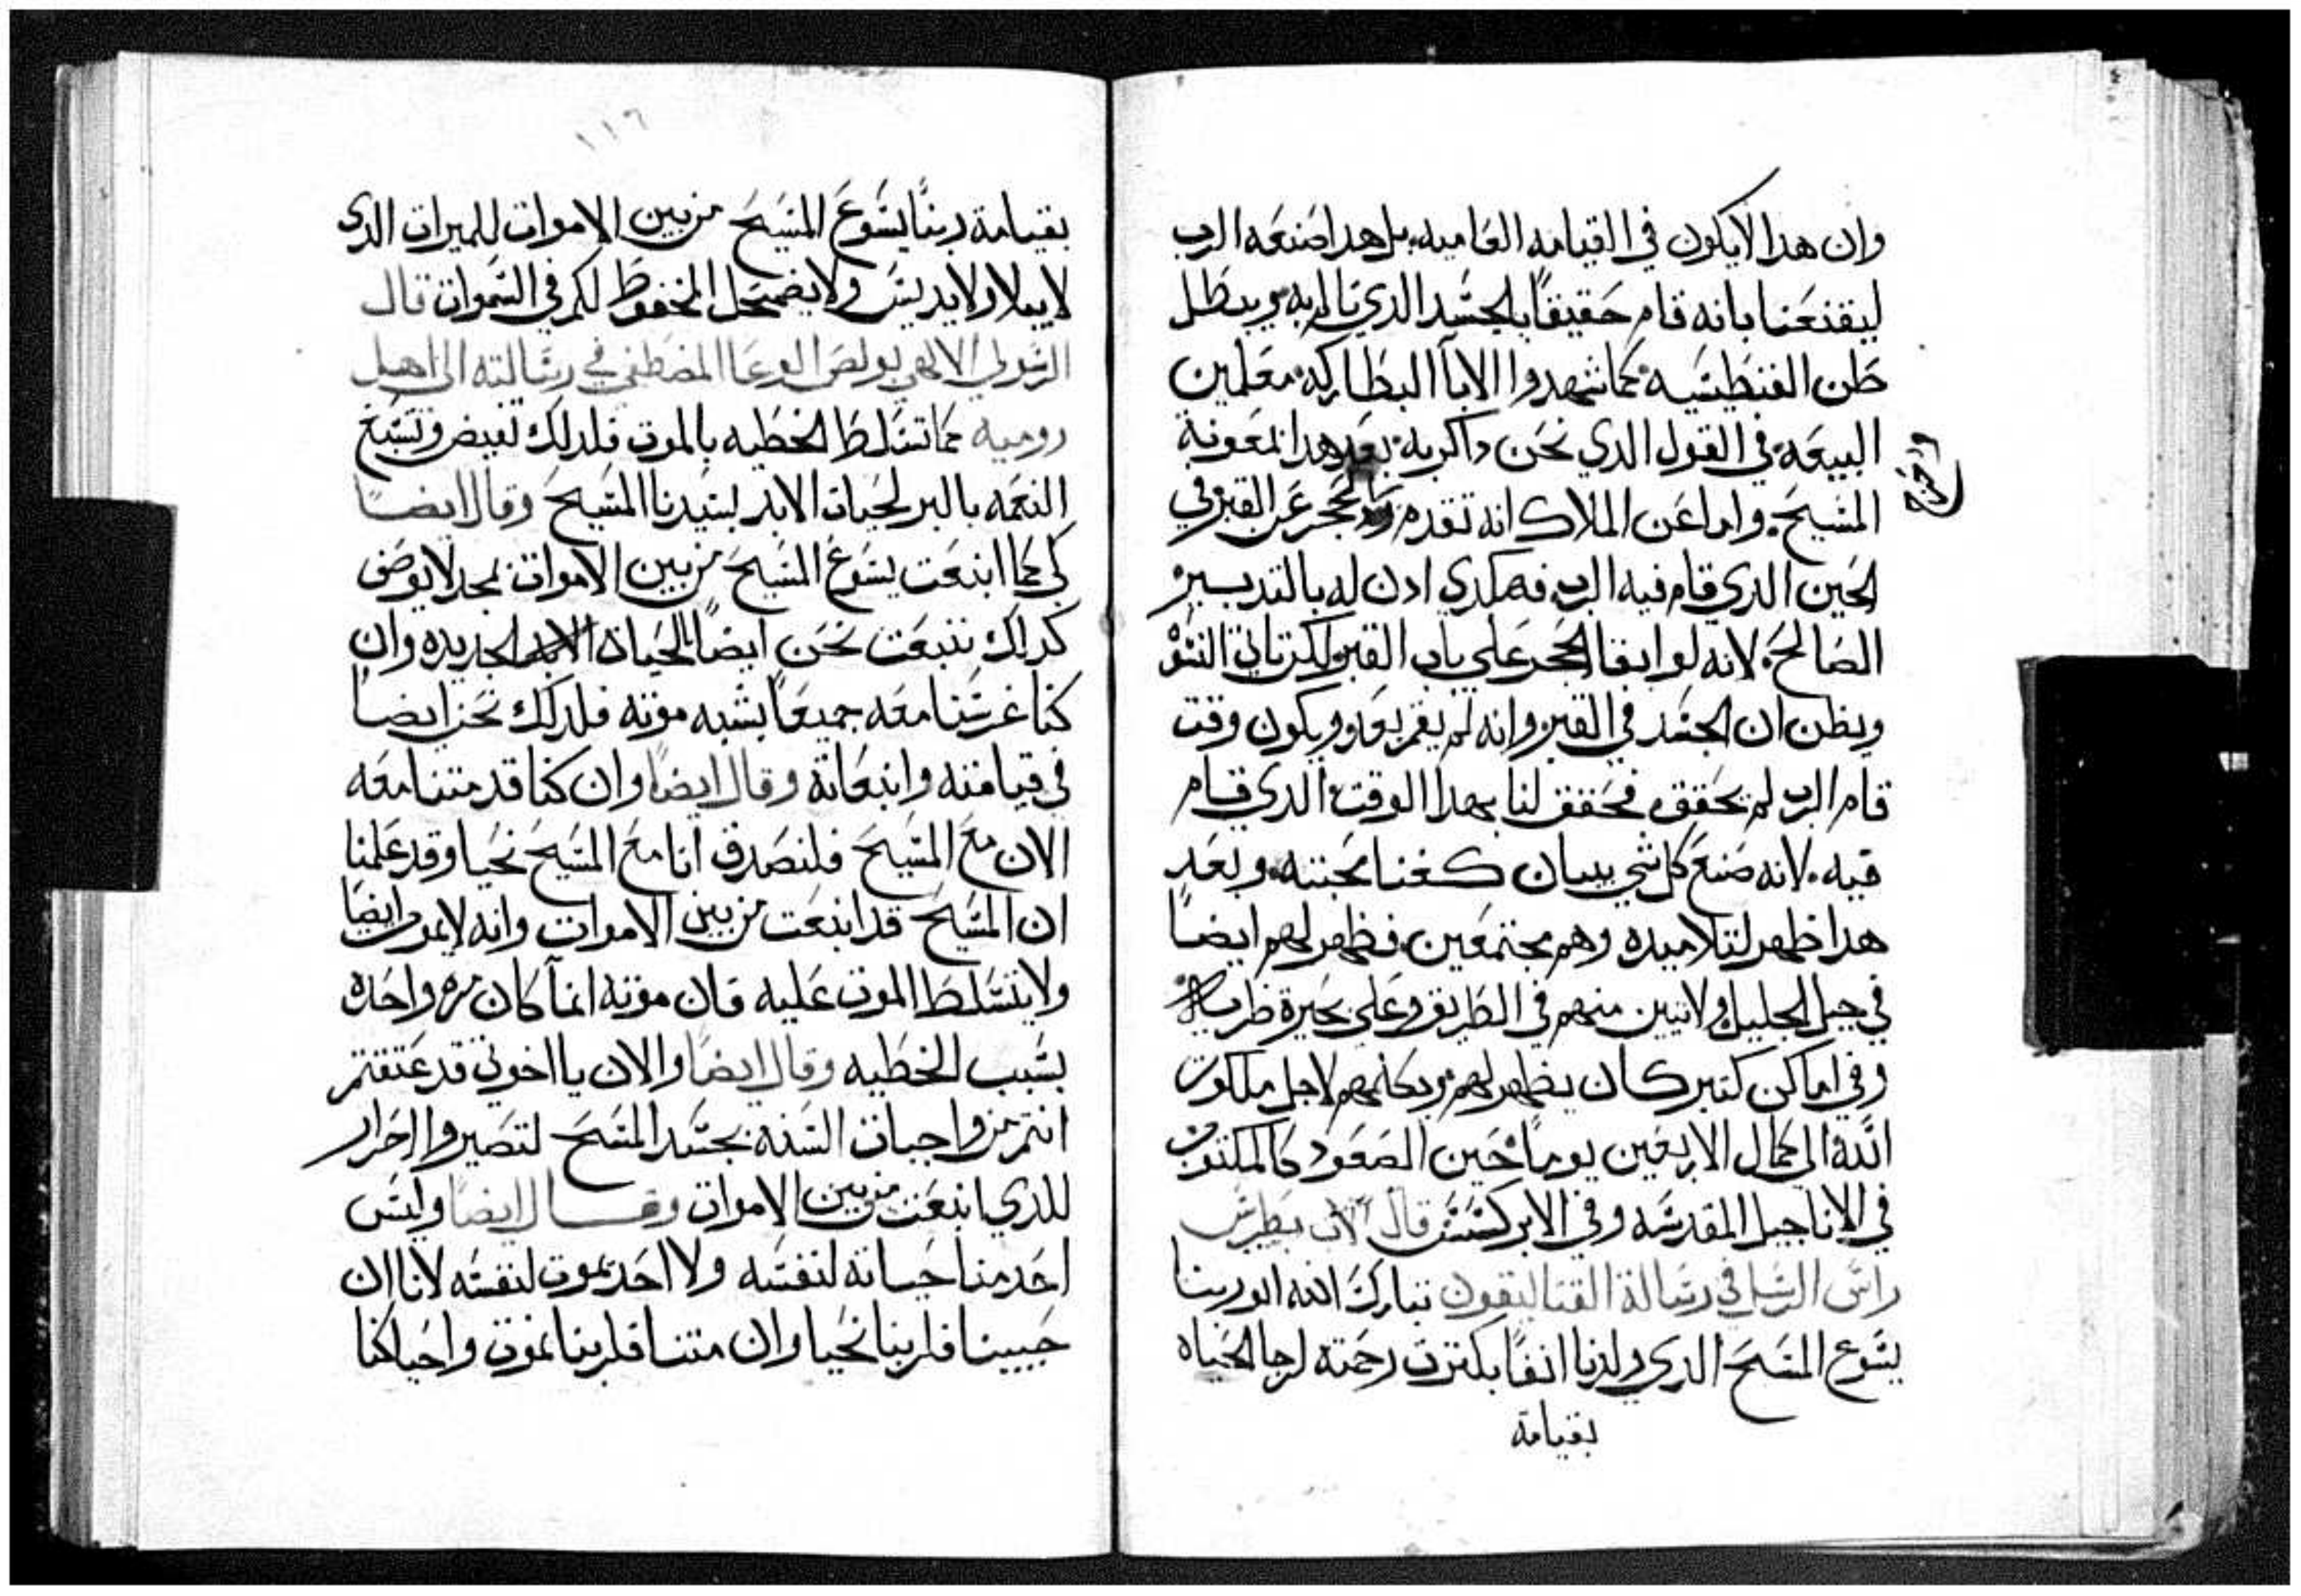 وان هدا لا يكون في القيامه العاميه بل هدا صنعه الرب
ليقنعنا بانه قام حقيقاً بالجسد الدي تالم به ويبطل
ظن الفنطيسيه كما شهدوا الابآ البطاركه معلمين
البيعه في القول الدي نحن داكريه بعد هدا بمعونة
المسيح واما عن الملاك انه تقدم الحجر عن القبر في
الحين الدي قام فيه الرب فهكدي ادن له بالتدبير
الصالح لانه لو ابقا الحجر علي باب القبر تاتي النسوه
ويظن ان الجسد في القبر وانه لم يقم بعد ويكون وقت
قام الرب لم يحقق فحقق لنا بهدا الوقت الدي قام
فيه لانه صنع كل شي ببيان كغنا محبته وبعد
هدا ظهر لتلاميده وهم مجتمعين فظهر لهم ايضاً
في جبل الجليل ولاتنين منهم في الطريق وعلي بحيرة
وفي اماكن كتير كان يظهر لهم ويكلمهم لاجل ملكوت
الله الي كمال الاربعين يوماً حين الصعود كالمكتوب
في الاناجيل المقدسه وفي الابركسس قال الاب بطرس
راس الرسل في رسالة القتاليقون تبارك الله ابو ربنا
يسوع المسيح الدي ولدنا انفاً بكترت رحمته لرجا الحياه
بقيامة
١١٦
بقيامة ربنا يسوع المسيح من بين الاموات للميرات الدي
لا يبلا ولا يدنس ولا يضمحل المحفوظ لكم في السموات قال
الرسول الالهي بولص الوعا المصطفي في رسالته الي اهل
روميه كما تسلط الخطيه بالموت فلدلك تفيض وتسبغ
النعمه بالبر لحيات الابد بسيدنا المسيح وقال ايضاً
كي كما انبعت يسوع المسيح من بين الاموات بمجد لا يوصف
كدلك ننبعت نحن ايضاً بالحياة الجديده وان
كنا غرسنا معه جميعاً بشبه موته فلدلك نحن ايضاً
في قيامته وانبعاته وقال ايضاً وان كنا قد متنا معه
الان مع المسيح فلنصدق انا مع المسيح نحيا وقد علمنا
ان المسيح قد انبعت من بين الاموات وانه لا يموت ايضا
ولا يتسلط الموت عليه فان موته انمآ كان مره واحده
بسبب الخطيه وقال ايضاً والان يا اخوتي قد عتقتم
انتم من واجبات السنه بجسد المسيح لتصيروا احرار
للدي انبعت من بين الاموات وقال ايضاً وليس
احد منا حياته لنفسه ولا احد يموت لنفسه لانا ان
حيينا فلربنا نحيا وان متنا فلربنا نموت واحيا كنا